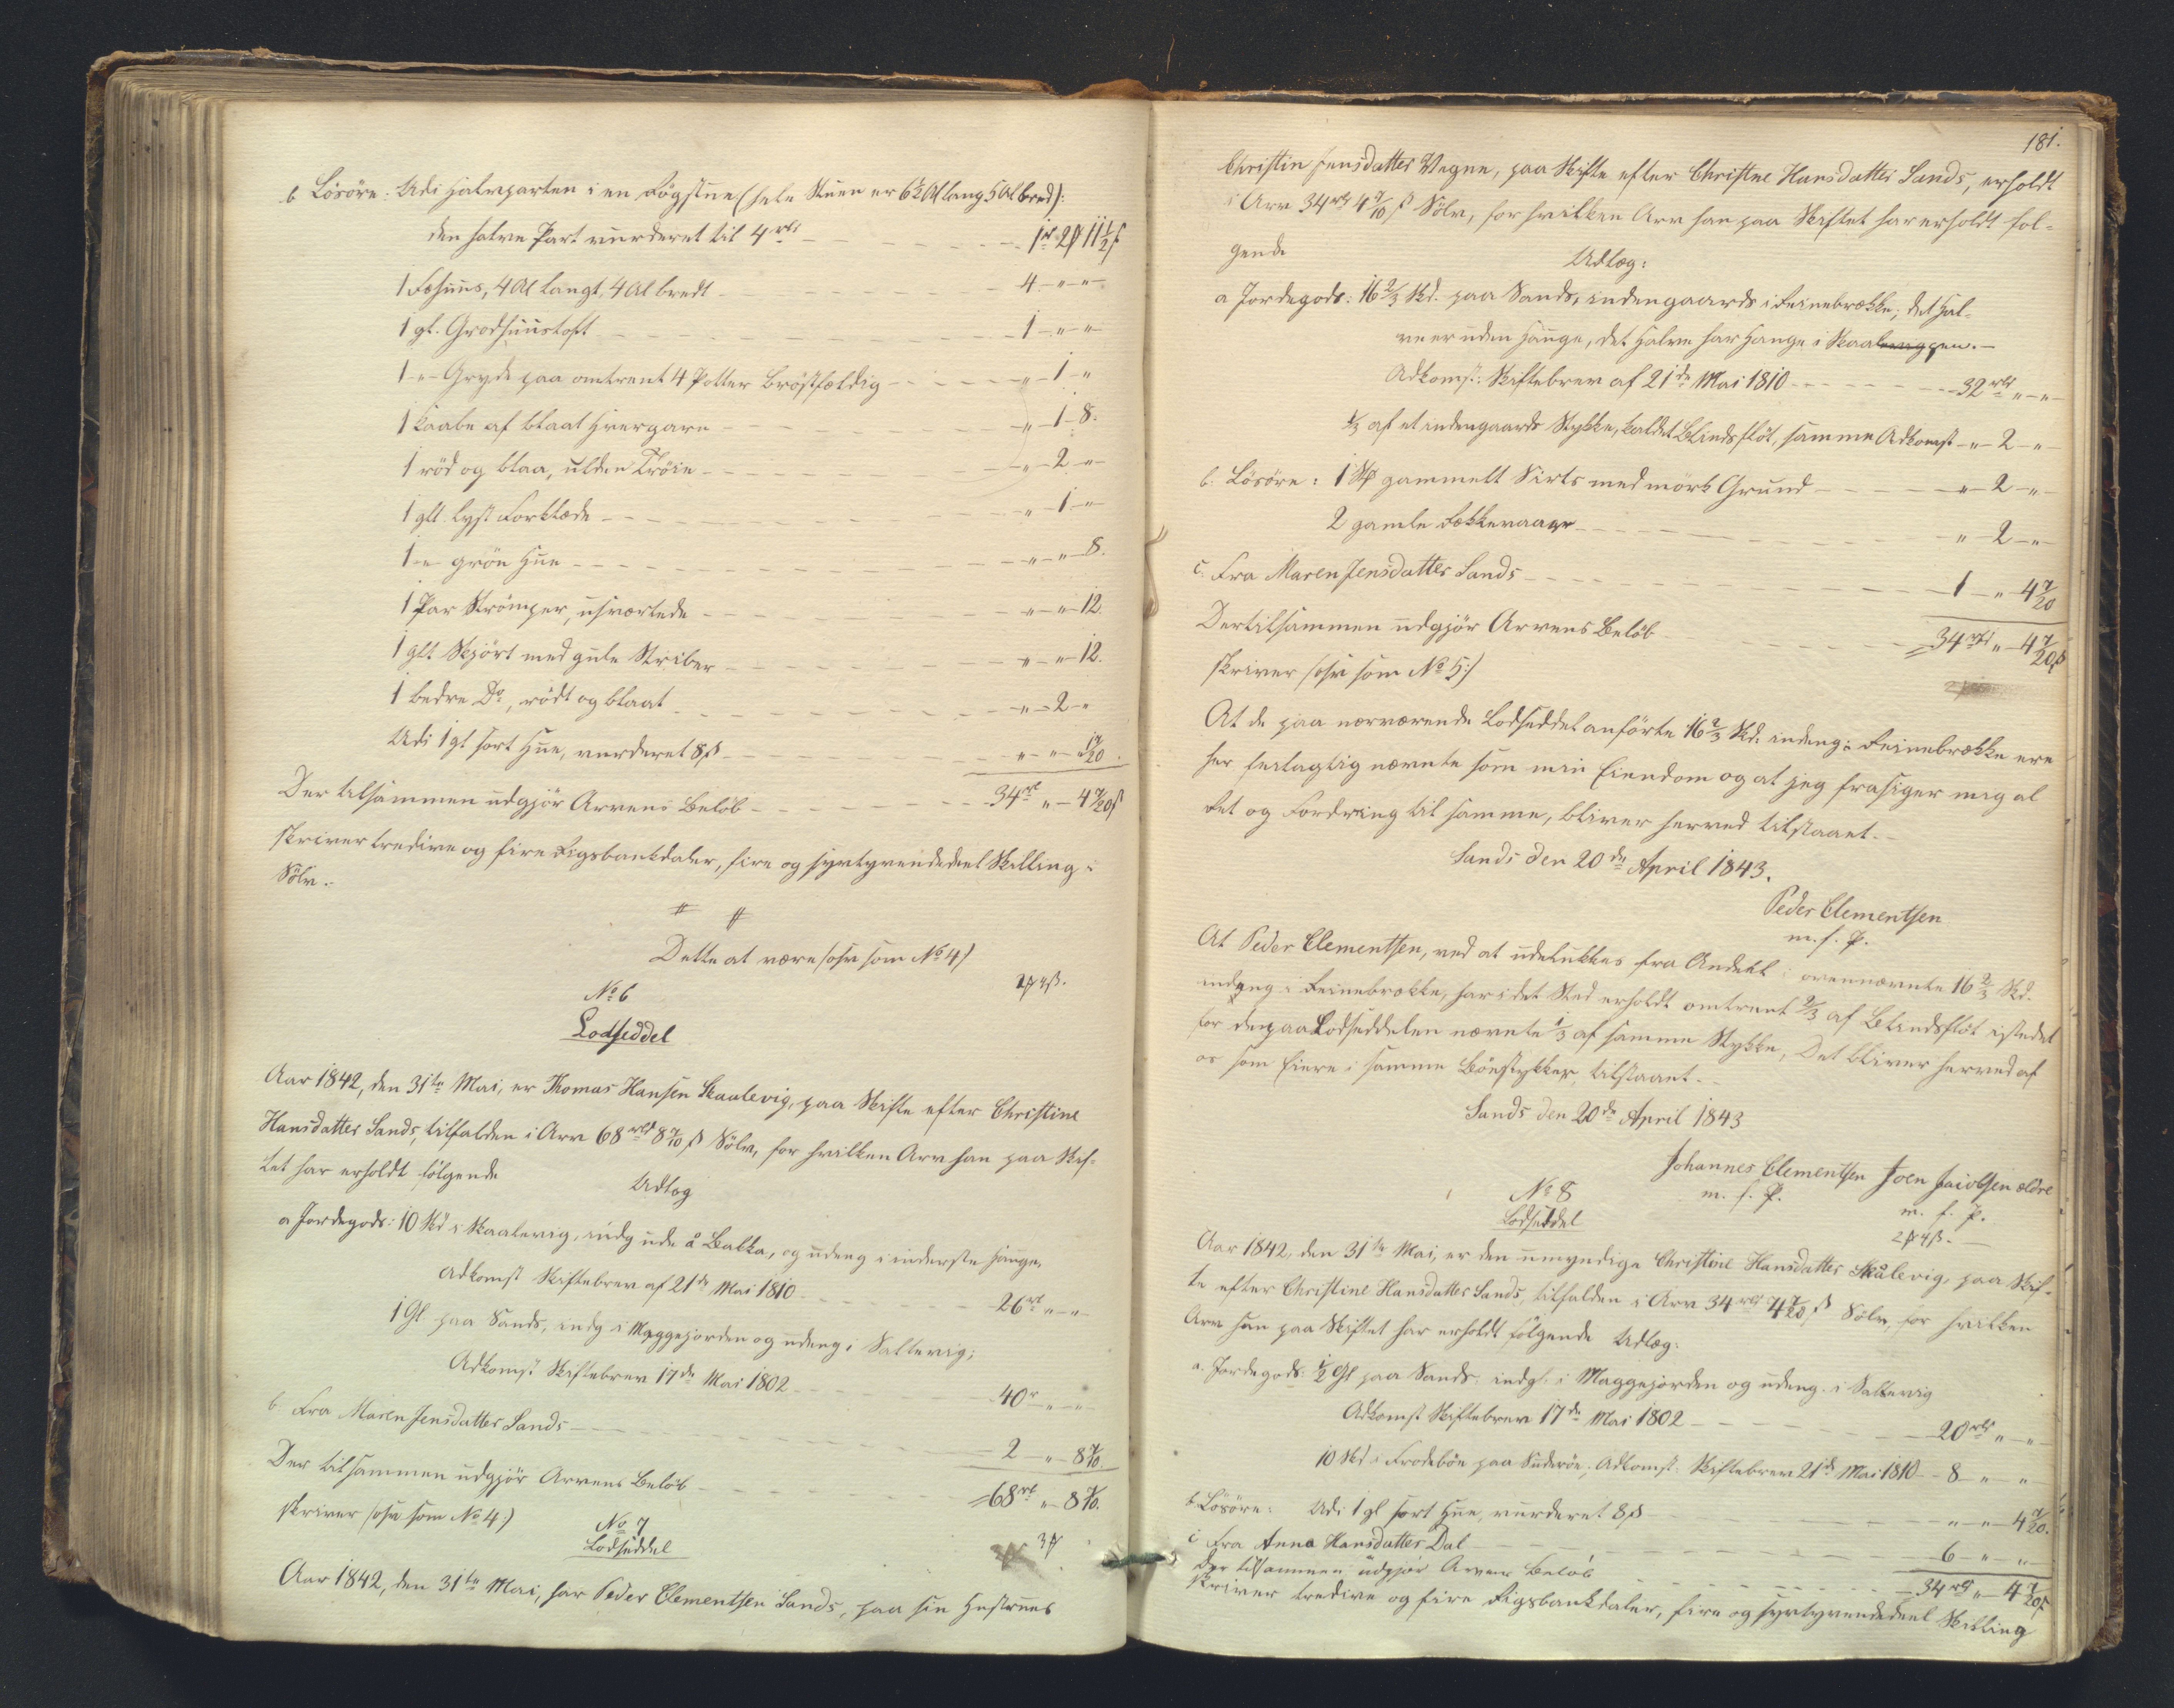 b Lösöre: Udi Halvparten i en Rögstue (hele Stuen er 6½ Al lang 5 Al bred):
den halve Part vurderet til 4 rbd 1 rd 2 𝔐 11½ ß
1 Fæhuus, 4 Al langt, 4 Al bredt 4 - " - "
1 gl. Grodhuustoft 1 - " - "
1 - " - Gryde paa omtrent 4 Potter bröstfældig " - 1 - "
1 Kaabe af blaat Hvergarn " - 1 - 8.
1 röd og blaa, ulden Tröie " - 2 - "
1 glt. lyst Forklæde " - 1 - "
1 - " - grön Hue " - " - 8.
1 Par Strömper, usværtede " - " - 12.
1 glt Skjört med gule Striber " - " - 12.
1 bedre Do, rödt og blaat " - 2 - "
Udi 1 gl sort Hue, vurderet 8 ß " - " - 17/20
Der tilsammen udgjör Arvens Belöb 34 rd " - 4 7/20 ß
skriver tredive og fire Rigsbankdaler, fire og syvtyvendedeel Skilling i
Sölv.
Dette at være (osv som No 4)
No 6
Lodseddel
Aar 1842, den 31te Mai, er Thomas Hansen Skaalevig, paa Skifte efter Christine
Hansdatter Sands, tilfalden i Arv 68 rbd 8 7/10 ß Sölv, for hvilken Arv han paa Skif-
tet har erholdt fölgende Udlæg
a Jordegods: 10 Skd i Skaalevig, indg ude å Bakka, og udeng i inderste Hauge,
Adkomst Skiftebrev af 21de Mai 1810 26 rd " - "
1 Gl paa Sands, indg i Maggejorden og udeng i Saltevig;
Adkomst Skiftebrev 17de Mai 1802 40 r " - "
b. Fra Maren Jensdatter Sands 2 - " - 8 7/10.
Der tilsammen udgjör Arvens Belöb 68 rd " - 8 7/10.
skriver (osv som No 4:)
No 7
Lodseddel
Aar 1842, den 31te Mai, har Peder Clementsen Sands, paa sin Hustrues
181.
Christin Jensdatter Vegne, paa Skifte efter Christne Hansdatter Sands, erholdt
i Arv 34 rd 4 7/10 ß Sölv, for hvilken Arv han paa Skiftet har erholdt föl-
gende Udlæg:
a Jordegods: 16 2/3 Skd. paa Sands, indengaards i Reinebrække; det Hal-
ve er uden Hauge, det Halve har Hauge i
Adkomst: Skiftebrev af 21de Mai 1810 32 rbd " - " -
1/3 af et indengaards Stykke, kaldet Blindsflöt, samme Adkomst - " - 2 - " -
b. Lösöre: 1 gammelt Sirts med mörk Grund " - 2 - " -
2 gamle Dækkenaar " - 2 - " -
c. Fra Maren Jensdatter Sands 1 - " 4 7/20
Der tilsammen udgjör Arvens Belöb 34 rbd " - 4 7/20 ß
skriver (osv som No 5:)
At de paa nærværende Lodseddel anförte 16 2/3 Skd. indeng i Reinebrække ere
her feilagtig nævnte som min Eiendom og at jeg frasiger mig al
Ret og Fordring til samme, bliver herved tilstaaet.
Sands den 20de April 1843.
Peder Clementsen
m. f. P.
At Peder Clementsen, ved at udelukkes fra Andeel i ovennævnte 16 2/3 Skd.
indeng i Reinebrække, har i det Sted erholdt omtrent 2/3 af Blindsflöt istedet
for den paa Lodseddelen nævnte 1/3 af samme Stykke, det bliver herved af
os som Eiere i samme Böestykker, tilstaaet.
Sands den 20de April 1843
Johannes Clementsen Joen Jacobsen ældre
m. f. P. m. f. P.
No 8
Lodseddel
Aar 1842, den 31te Mai, er den umyndige Christine Hansdatter Skålevig, paa Skif-
te efter Christine Hansdatter Sands, tilfalden i Arv 34 rd 4 7/20 ß Sölv, for hvilken
Arv hun paa Skiftet har erholdt fölgende Udlæg:
a. Jordegods: ½ Gl paa Sands, indg. i Maggejorden og udeng. i Saltevig
Adkomst Skiftebrev 17de Mai 1802 20 rbd " - "
10 Skd i Frodebön paa Suderöe; Adkomst Skiftebrev 21de Mai 1810 8 " - "
b Lösöre: Udi 1 gl sort Hue, vurderet 8 ß " - " - 4 7/20.
c Fra Anna Hansdatter Dal 6 - " - "
Der tilsammen udgjör Arvens Belöb 34 rd " - 4 7/20 ß
skriver tredive og fire Rigsbankdaler, fire og syvtyvendedeel Skilling